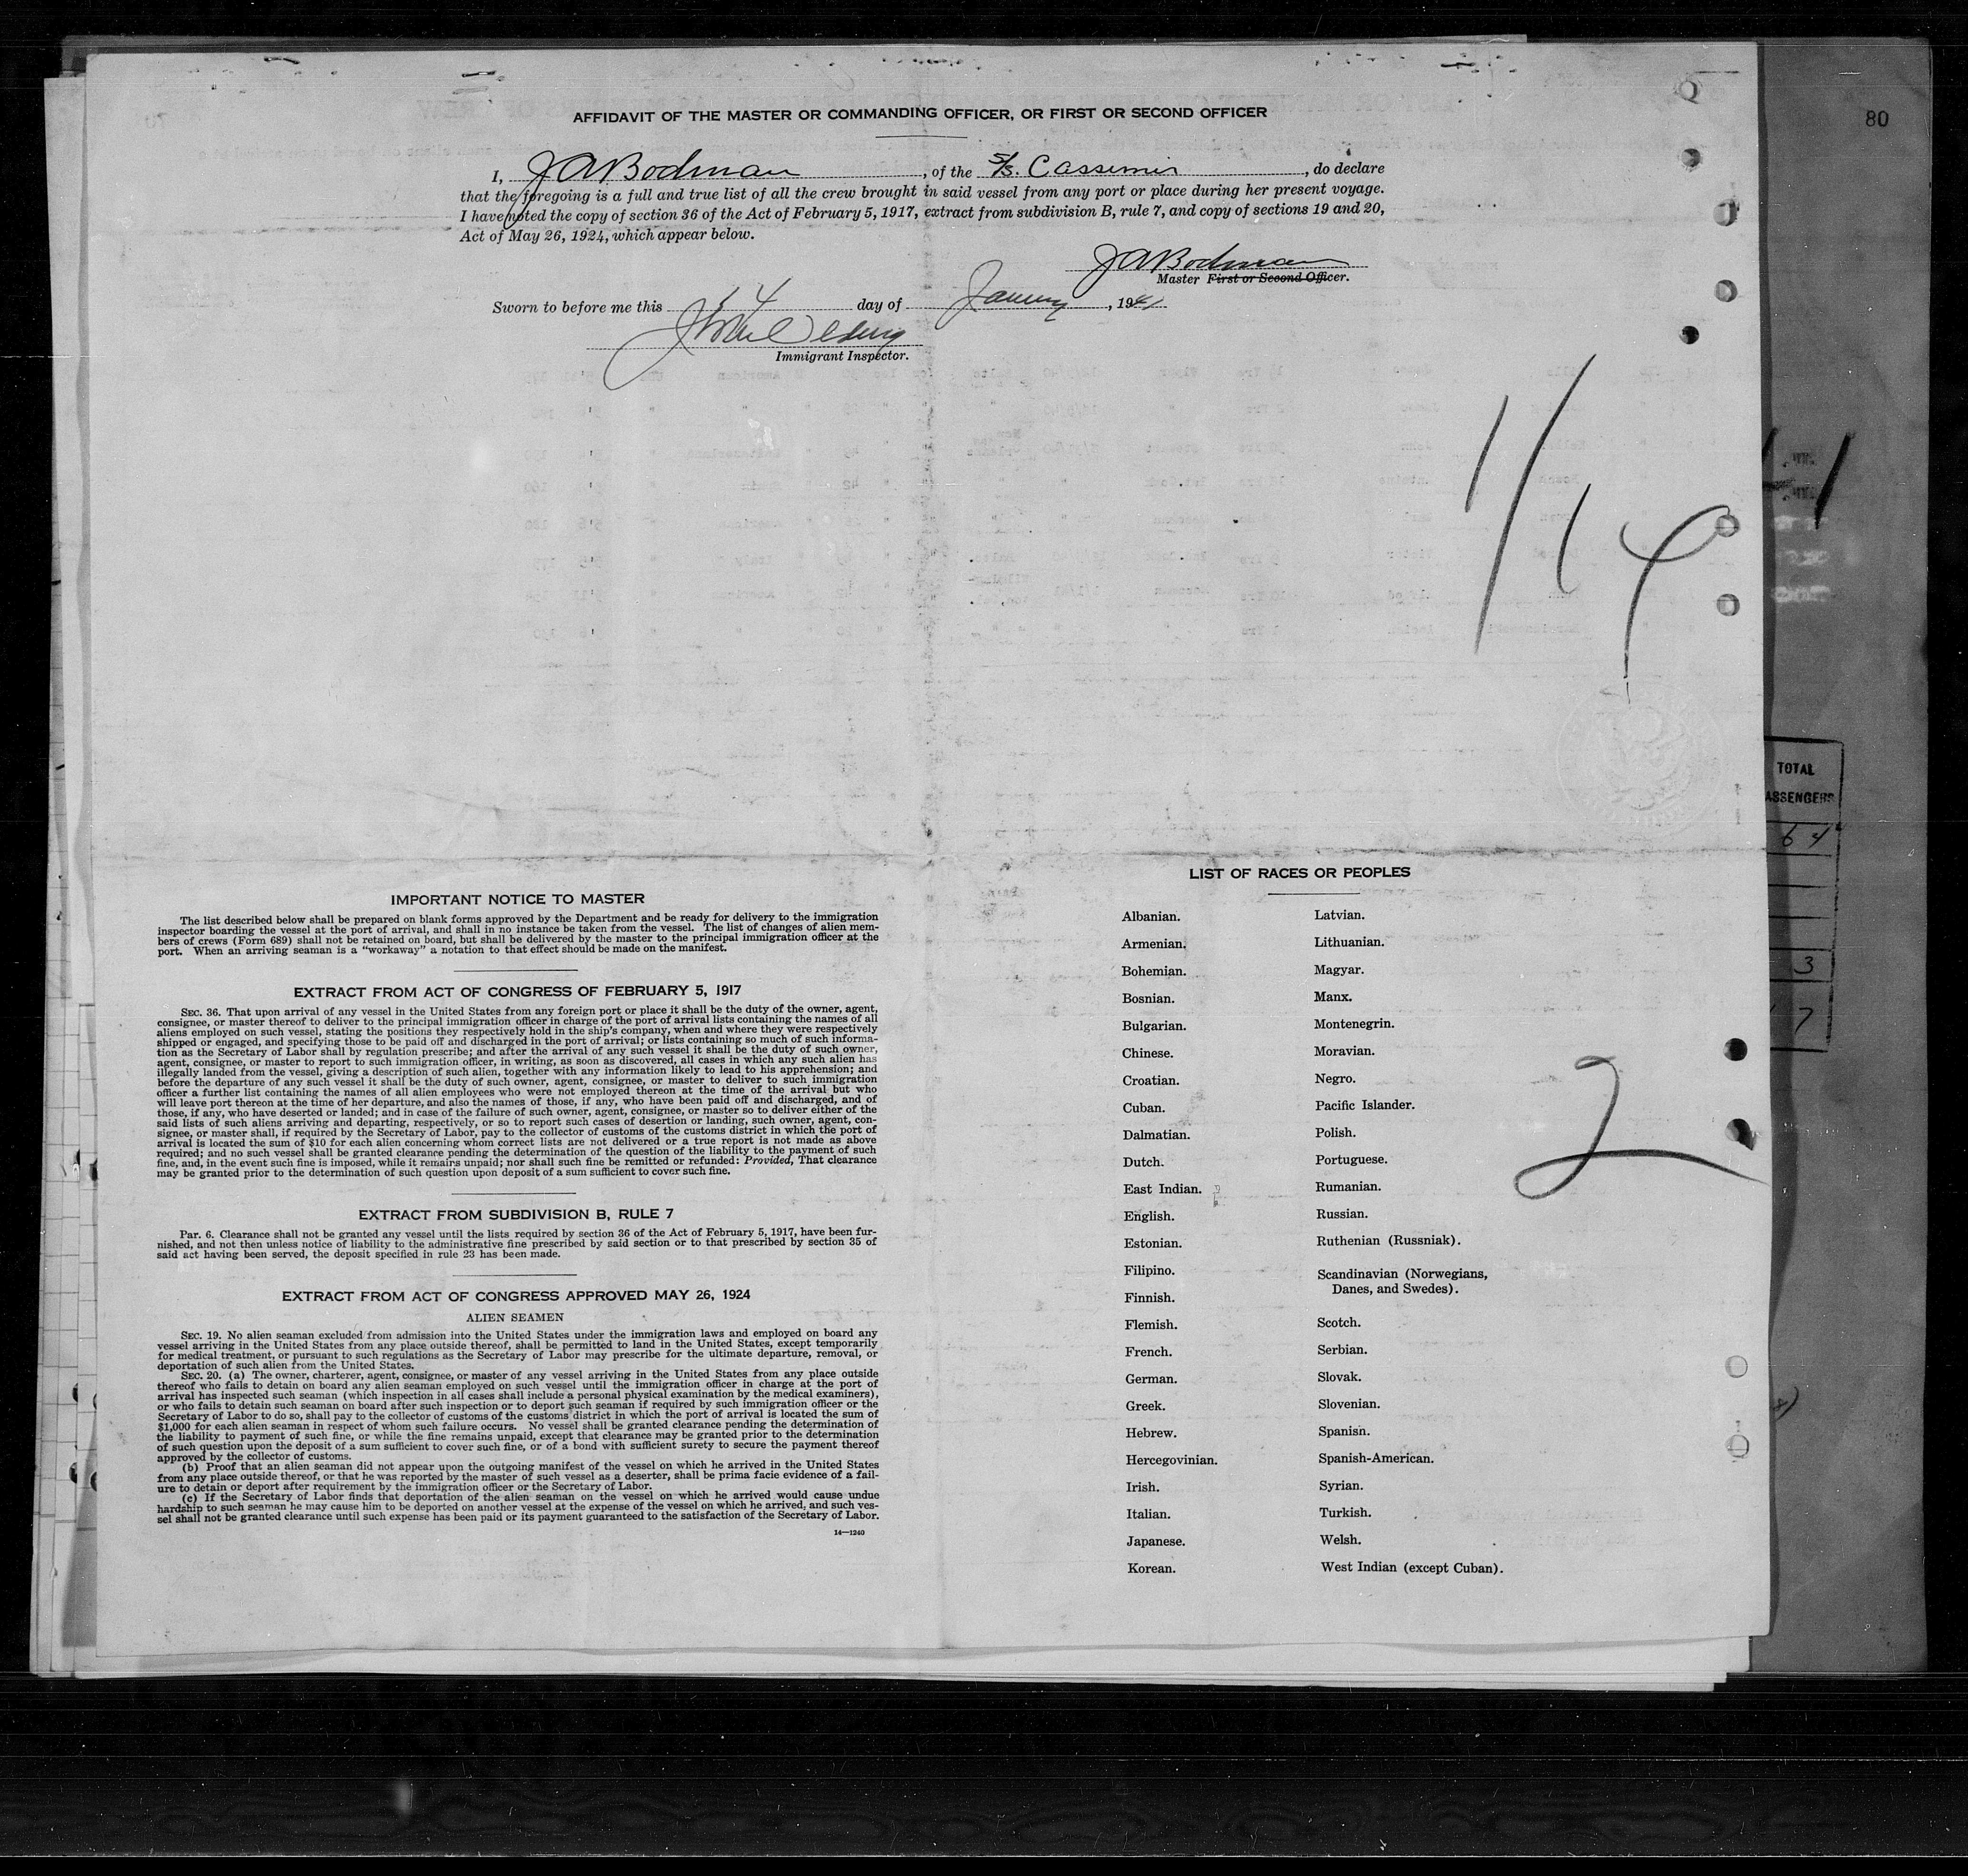 80
AFFIDAVIT OF THE MASTER OR COMMANDING OFFICER, OR FIRST OR SECOND OFFICER
I, JABodman, of the S/S. Cassimir, do declare
that the foregoing is a full and true list of all the crew brought in said vessel from any port or place during her present voyage.
I have noted the copy of section 36 of the Act of February 5, 1917, extract from subdivision B, rule 7, and copy of sections 19 and 20,
Act of May 26, 1924, which appear below.
JABodman
Master First or Second Officer.
Sworn to before me this 14 day of January, 1941
Immigrant Inspector.
1/14
TOTAL
ASSENGERS
64
3
7
2
IMPORTANT NOTICE TO MASTER
The list described below shall be prepared on blank forms approved by the Department and be ready for delivery to the immigration
inspector boarding the vessel at the port of arrival, and shall in no instance be taken from the vessel. The list of changes of alien mem-
bers of crews (Form 689) shall not be retained on board, but shall be delivered by the master to the principal immigration officer at the
port. When an arriving seaman is a "workaway" a notation to that effect should be made on the manifest.
EXTRACT FROM ACT OF CONGRESS OF FEBRUARY 5, 1917
SEC. 36. That upon arrival of any vessel in the United States from any foreign port or place it shall be the duty of the owner, agent,
consignee, or master thereof to deliver to the principal immigration officer in charge of the port of arrival lists containing the names of all
aliens employed on such vessel, stating the positions they respectively hold in the ship's company, when and where they were respectively
shipped or engaged, and specifying those to be paid off and discharged in the port of arrival; or lists containing so much of such informa-
tion as the Secretary of Labor shall by regulation prescribe; and after the arrival of any such vessel it shall be the duty of such owner,
agent, consignee, or master to report to such immigration officer, in writing, as soon as discovered, all cases in which any such alien has
illegally landed from the vessel, giving a description of such alien, together with any information likely to lead to his apprehension; and
before the departure of any such vessel it shall be the duty of such owner, agent, consignee, or master to deliver to such immigration
officer a further list containing the names of all alien employees who were not employed thereon at the time of the arrival but who
will leave port thereon at the time of her departure, and also the names of those, if any, who have been paid off and discharged, and of
those, if any, who have deserted or landed; and in case of the failure of such owner, agent, consignee, or master so to deliver either of the
said lists of such aliens arriving and departing, respectively, or so to report such cases of desertion or landing, such owner, agent, con-
signee, or master shall, if required by the Secretary of Labor, pay to the collector of customs of the customs district in which the port of
arrival is located the sum of $10 for each alien concerning whom correct lists are not delivered or a true report is not made as above
required; and no such vessel shall be granted clearance pending the determination of the question of the liability to the payment of such
fine, and, in the event such fine is imposed, while it remains unpaid; nor shall such fine be remitted or refunded: Provided, That clearance
may be granted prior to the determination of such question upon deposit of a sum sufficient to cover such fine.
EXTRACT FROM SUBDIVISION B, RULE 7
Par. 6. Clearance shall not be granted any vessel until the lists required by section 36 of the Act of February 5, 1917, have been fur-
nished, and not then unless notice of liability to the administrative fine prescribed by said section or to that prescribed by section 35 of
said act having been served, the deposit specified in rule 23 has been made.
EXTRACT FROM ACT OF CONGRESS APPROVED MAY 26, 1924
ALIEN SEAMEN
SEC. 19. No alien seaman excluded from admission into the United States under the immigration laws and employed on board any
vessel arriving in the United States from any place outside thereof, shall be permitted to land in the United States, except temporarily
for medical treatment, or pursuant to such regulations as the Secretary of Labor may prescribe for the ultimate departure, removal, or
deportation of such alien from the United States.
SEC. 20. (a) The owner, charterer, agent, consignee, or master of any vessel arriving in the United States from any place outside
thereof who fails to detain on board any alien seaman employed on such vessel until the immigration officer in charge at the port of
arrival has inspected such seaman (which inspection in all cases shall include a personal physical examination by the medical examiners),
or who fails to detain such seaman on board after such inspection or to deport such seaman if required by such immigration officer or the
Secretary of Labor to do so, shall pay to the collector of customs of the customs district in which the port of arrival is located the sum of
$1,000 for each alien seaman in respect of whom such failure occurs. No vessel shall be granted clearance pending the determination of
the liability to payment of such fine, or while the fine remains unpaid, except that clearance may be granted prior to the determination
of such question upon the deposit of a sum sufficient to cover such fine, or of a bond with sufficient surety to secure the payment thereof
approved by the collector of customs.
(b) Proof that an alien seaman did not appear upon the outgoing manifest of the vessel on which he arrived in the United States
from any place outside thereof, or that he was reported by the master of such vessel as a deserter, shall be prima facie evidence of a fail-
ure to detain or deport after requirement by the immigration officer or the Secretary of Labor.
(c) If the Secretary of Labor finds that deportation of the alien seaman on the vessel on which he arrived would cause undue
hardship to such seaman he may cause him to be deported on another vessel at the expense of the vessel on which he arrived, and such ves-
sel shall not be granted clearance until such expense has been paid or its payment guaranteed to the satisfaction of the Secretary of Labor.
14—1240
LIST OF RACES OR PEOPLES
Albanian.
Armenian.
Bohemian.
Bosnian.
Bulgarian.
Chinese.
Croatian.
Cuban.
Dalmatian.
Dutch.
East Indian.
English.
Estonian.
Filipino.
Finnish.
Flemish.
French.
German.
Greek.
Hebrew.
Hercegovinian.
Irish.
Italian.
Japanese.
Korean.
Latvian.
Lithuanian.
Magyar.
Manx.
Montenegrin.
Moravian.
Negro.
Pacific Islander.
Polish.
Portuguese.
Rumanian.
Russian.
Ruthenian (Russniak).
Scandinavian (Norwegians,
Danes, and Swedes).
Scotch.
Serbian.
Slovak.
Slovenian.
Spanish.
Spanish-American.
Syrian.
Turkish.
Welsh.
West Indian (except Cuban).